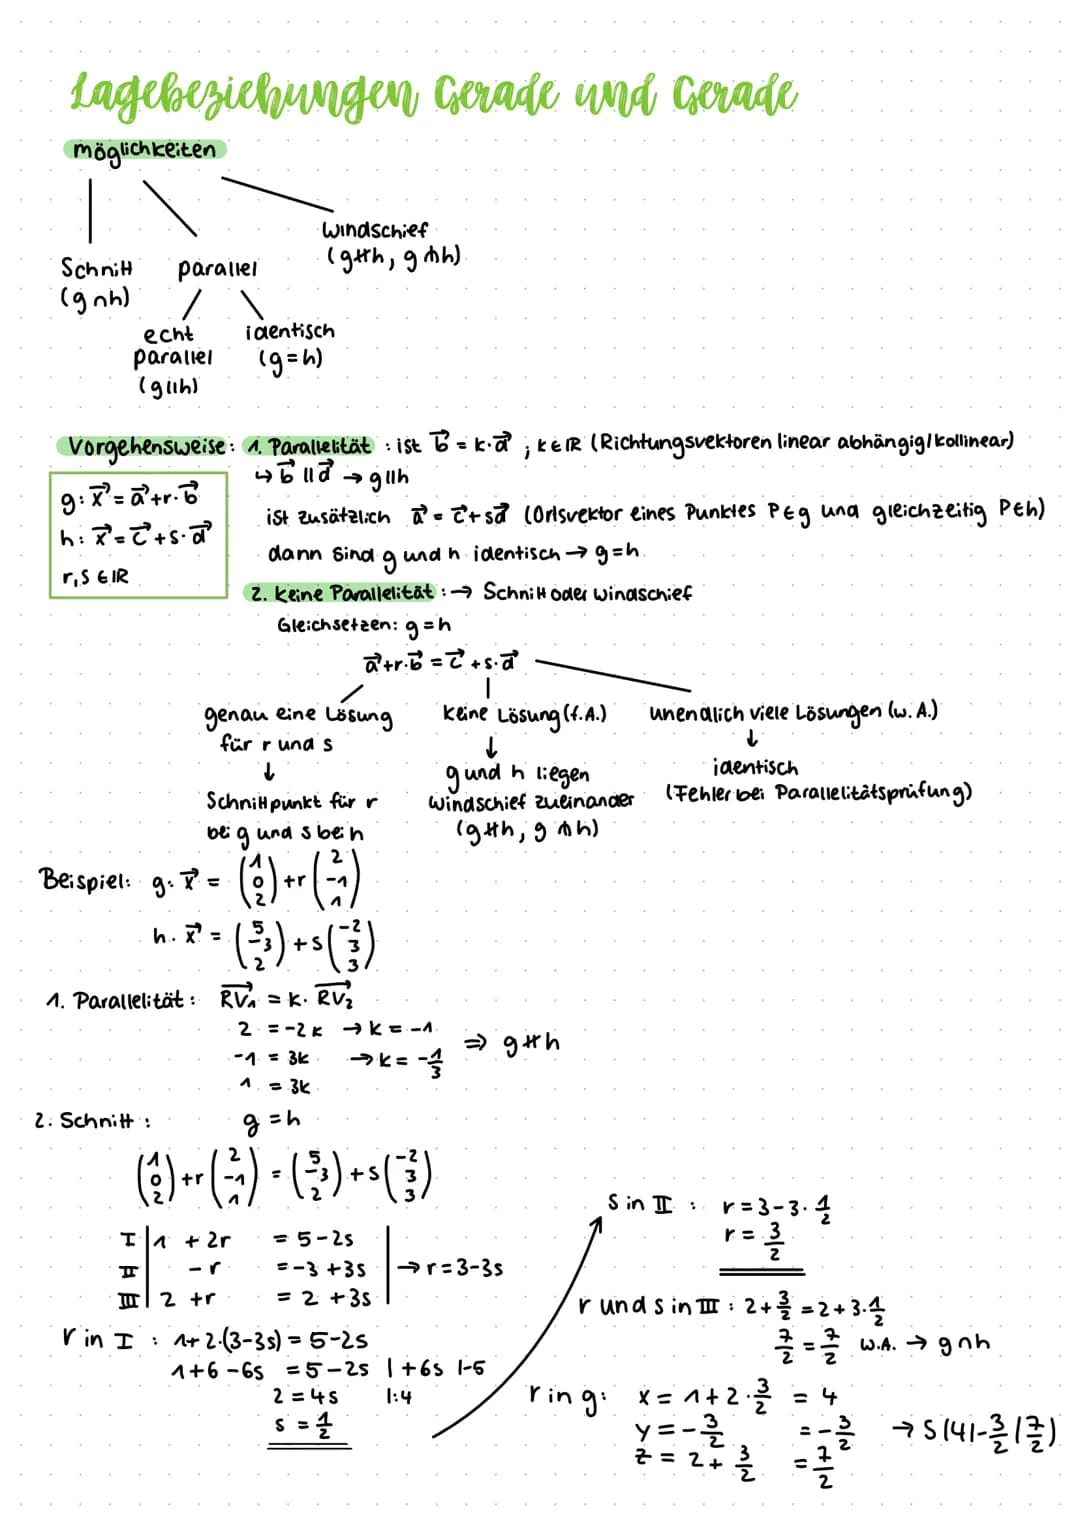 Lagebeziehungen Gerade und Gerade
möglichkeiten
Schnitt (g∩h)
parallel
windschief (g∦h, g⋔h)
echt parallel (g||h)
identisch (g=h)
Vorgehensweise: 1. Parallelität : ist b⃗ = k·d⃗ ; k∈IR (Richtungsvektoren linear abhängig/kollinear)
↳ b⃗ || d⃗ → g||h
g: x⃗ = a⃗ + r·b⃗
h: x⃗ = c⃗ + s·d⃗
r,s ∈ IR
ist zusätzlich a⃗ = c⃗ + sd⃗ (Ortsvektor eines Punktes P∈g und gleichzeitig P∈h)
dann sind g und h identisch → g=h
2. keine Parallelität : → Schnitt oder windschief
Gleichsetzen: g=h
a⃗+r·b⃗ = c⃗+s·d⃗
genau eine Lösung für r und s
↓
Schnittpunkt für r bei g und s bei h
keine Lösung (f.A.)
↓
g und h liegen windschief zueinander (g∦h, g⋔h)
unendlich viele Lösungen (w. A.)
↓
identisch
(Fehler bei Parallelitätsprüfung)
Beispiel: g: x⃗ = (1 0 2) + r (2 -1 1)
h. x⃗ = (5 -3 2) + s (-2 3 3)
1. Parallelität : RV₁ = k· RV₂
2 = -2k → k = -1
-1 = 3k → k = -1/3
1 = 3k
⇒ g∦h
2. Schnitt : g = h
(1 0 2) + r (2 -1 1) = (5 -3 2) + s (-2 3 3)
I | 1 + 2r = 5-2s
II | -r = -3 +3s | → r = 3-3s
III | 2 + r = 2 +3s
r in I : 1+2·(3-3s) = 5-2s
1+6-6s = 5-2s | +6s |-5
2 = 4s |:4
s = 1/2
S in II : r = 3-3·1/2
r = 3/2
r und s in III : 2+3/2 = 2+3·1/2
7/2 = 7/2 W.A. → g∩h
r in g: x = 1+2·3/2 = 4
y = -3/2 = -3/2
z = 2+3/2 = 7/2
→ S(4|-3/2|7/2)